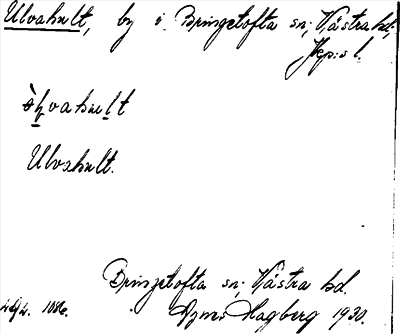 Ulvahult, by i Bringetofta sn; Västra hd;
Jkp:s l.
Ulvahult.
Bringetofta sn; Västra hd.
Agnes Hagberg 1930.